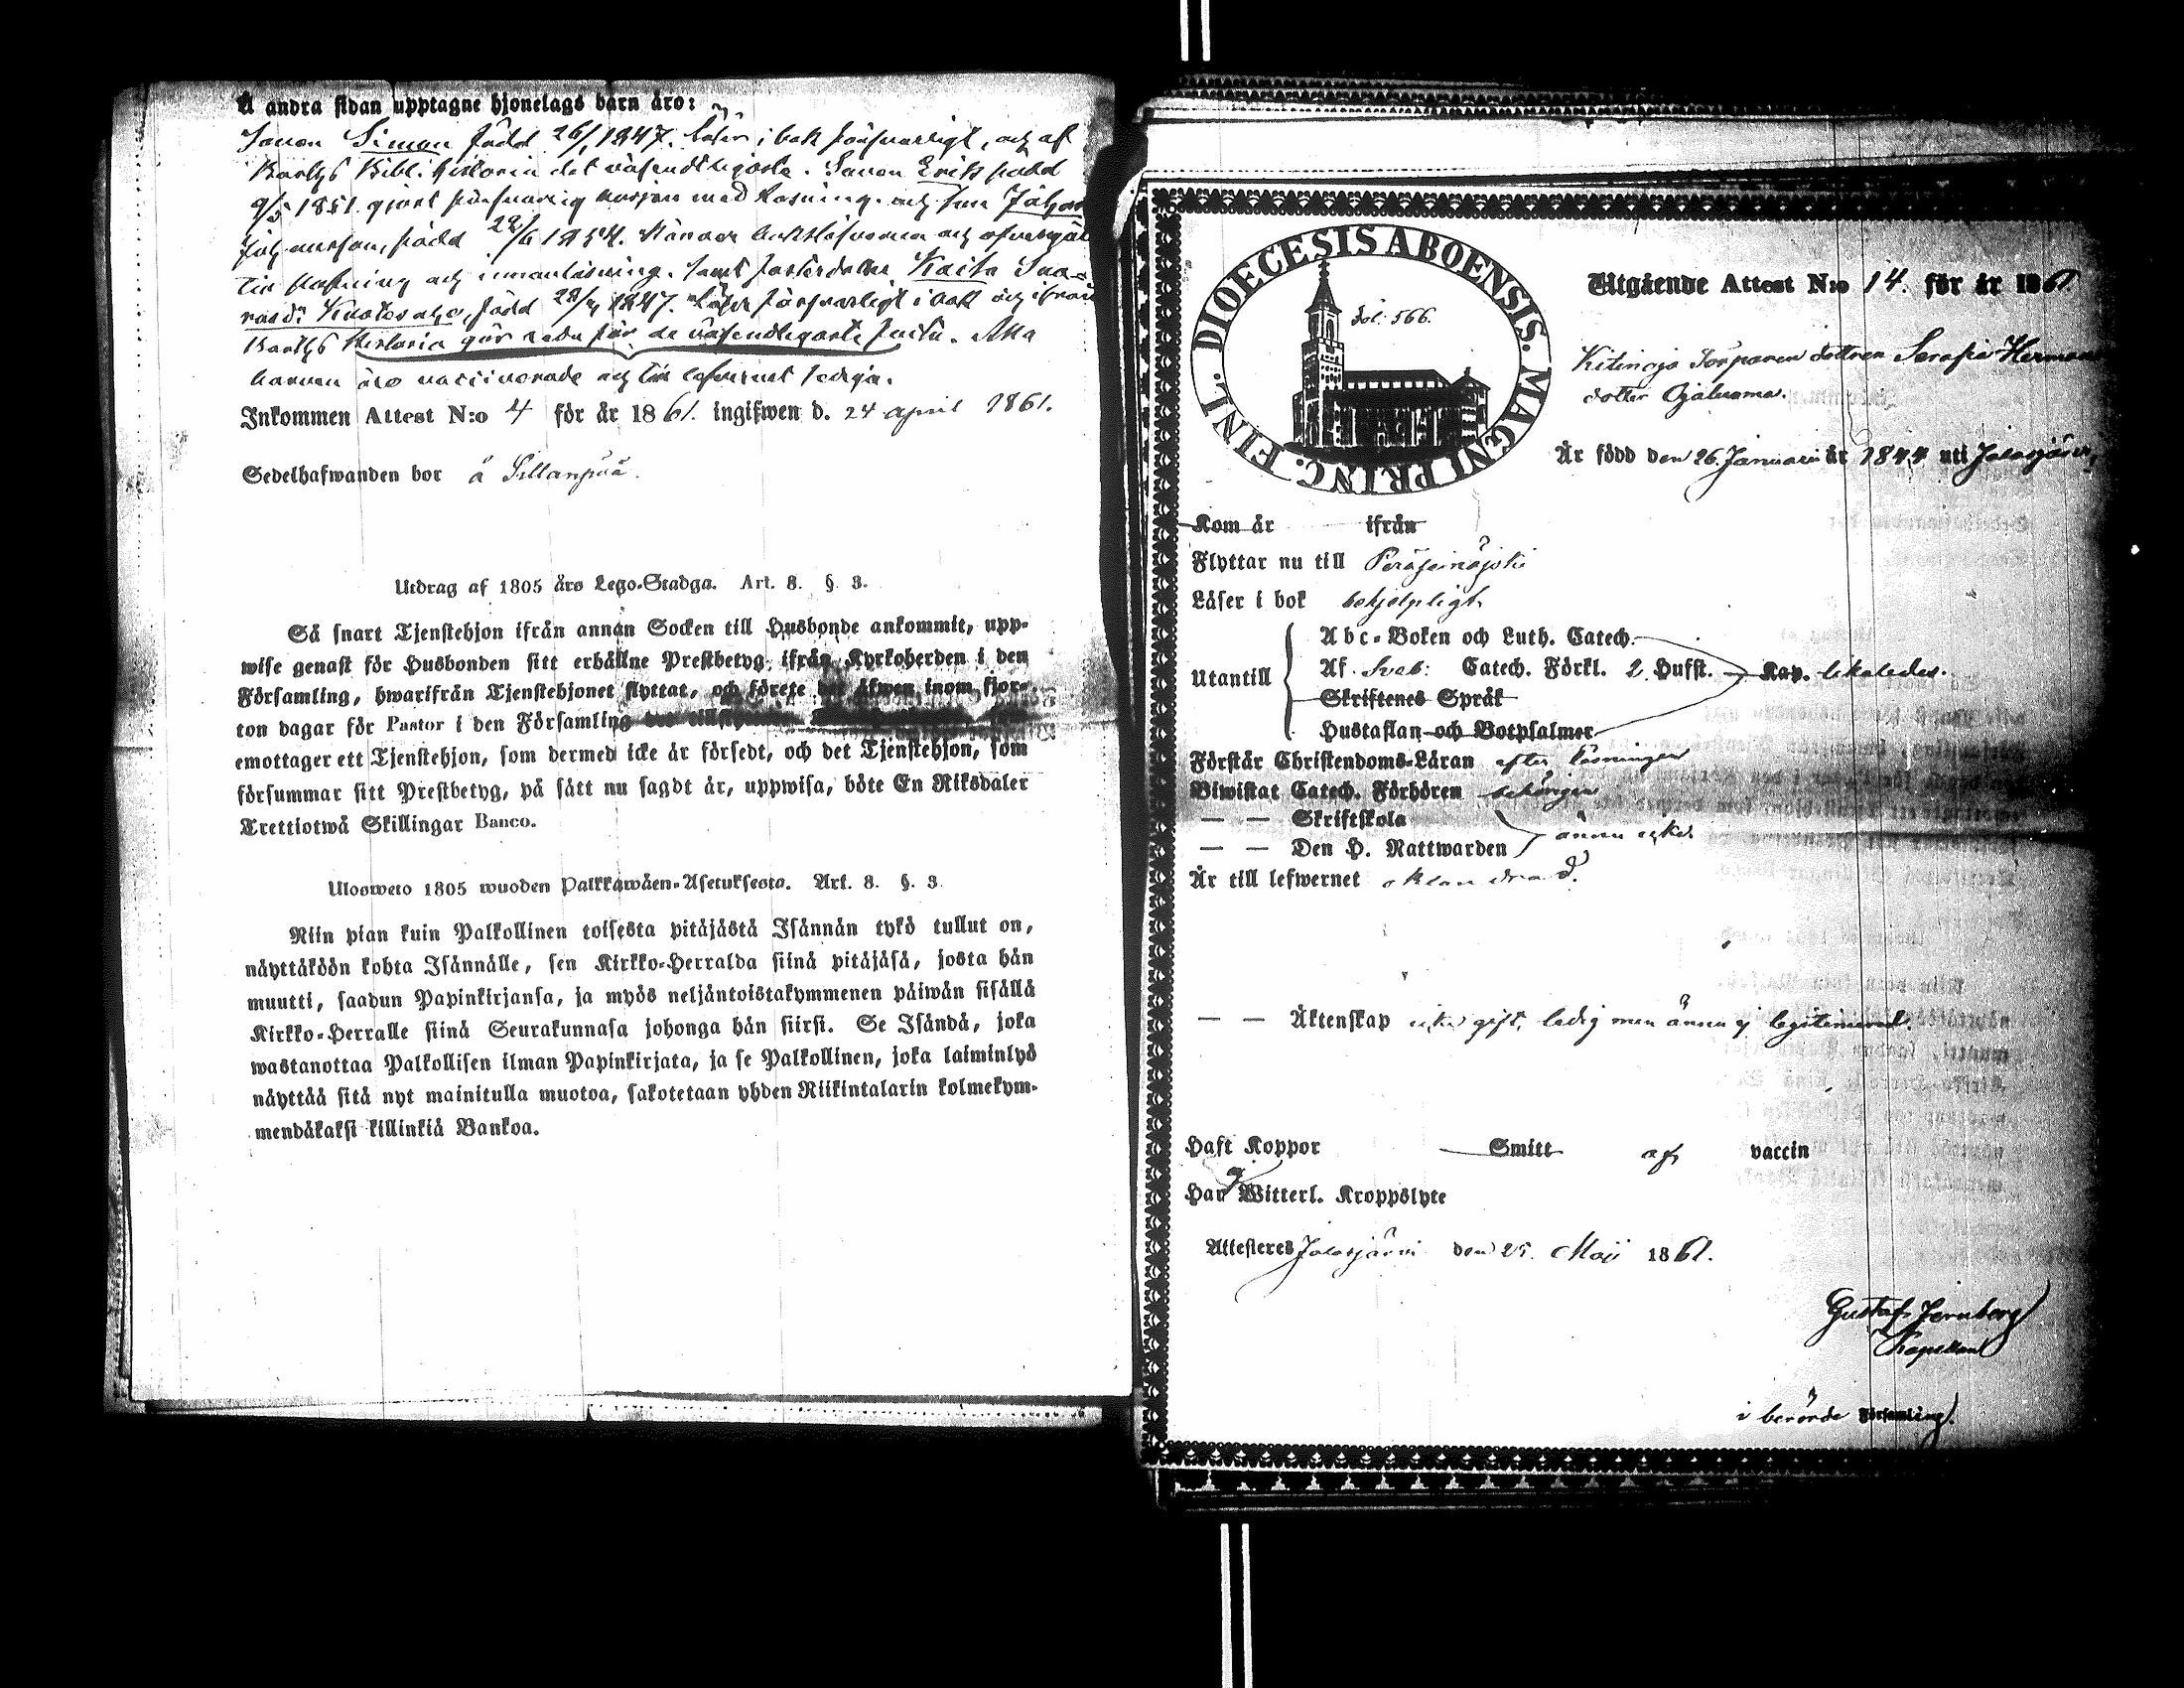 Å andra sidan upptagne hjonelags barn äro:
Sonen Simon född 26/1 1847. läser i bok försvarligt, och af
Barths Bibl. historia det väsendtligaste. Sonen Erik född
9/5 1851 gjort försvarlig början med läsning. och son Johan
född 22/6 1854. Känner bokstäfverna och
till stafning och innanläsning. samt fosterdotter Kaisa
född 28/ 1847. läser försvarligt i bok och ifrån
Barths Historia gör reda för de väsendtligaste . Alla
barnen äro vaccinerade och till lefvernet lediga.
Inkommen Attest N:o 4 för år 1861. ingifwen d. 24 april 1861.
Sedelhafwanden bor å Sillanpää.
Utdrag af 1805 års Lego-Stadga. Art. 8. §. 3.
Så snart Tjenstehjon ifrån annan Socken till Husbonde ankommit, upp-
wise genast för Husbonden sitt erhållne Prestbetyg ifrån Kyrkoherden i den
Församling, hwarifrån Tjenstehjonet flyttat, och förete det äfwen inom fjor-
ton dagar för Pastor i den Församling
emottager ett Tjenstehjon, som dermed icke är försedt, och det Tjenstehjon, som
försummar sitt Prestbetyg, på sätt nu sagdt är, uppwisa, böte En Riksdaler
Trettiotwå Skillingar Banco.
Ulosweto 1805 wuoden Palkkawäen-Asetuksesta. Art. 8. §. 3.
Niin pian kuin Palkollinen toisesta pitäjästä Isännän tykö tullut on,
näyttäköön kohta Isännälle, sen Kirkko-Herralda siinä pitäjäsä, josta hän
muutti, saadun Papinkirjansa, ja myös neljäntoistakymmenen päiwän sisällä
Kirkko-Herralle siinä Seurakunnasa johonga hän siirsi. Se Isändä, joka
wastanottaa Palkollisen ilman Papinkirjata, ja se Palkollinen, joka laiminlyö
näyttää sitä nyt mainitulla muotoa, sakotetaan yhden Riikintalarin kolmekym-
mendäkaksi killinkiä Bankoa.
DIOECESIS ABOENSIS. MAGNI PRINC. FINL.
fol: 566.
Utgående Attest N:o 14. för år 1861
Kitinoja Torparen dottren Serafia Hermans
dotter Ojaluoma.
Är född den 26. Januari år 1844 uti Jalasjärvi,
Kom år ifrån
Flyttar nu till Peräseinäjoki
Läser i bok behjelpligt
Utantill
Abc-Boken och Luth. Catech.
Af Sveb: Catech. Förkl. 2 Hufst. Kap. likaledes.
Skriftenes Språk
Hustaflan och Botpsalmer
Förstår Christendoms-Läran efter läsningen
Biwistat Catech. Förhören behörigen
— — Skriftskola
— — Den H. Nattwarden ännu icke.
Är till lefwernet oklandrad.
— — Äktenskap icke gift, ledig men ännu ej legitimerad.
Haft Koppor Smitt af vaccin
Har ej Witterl. Kroppslyte
Attesteres Jalasjärvi den 25. Maji 1861.
Gustaf Jernberg
Kapellan
i berörde Församling.